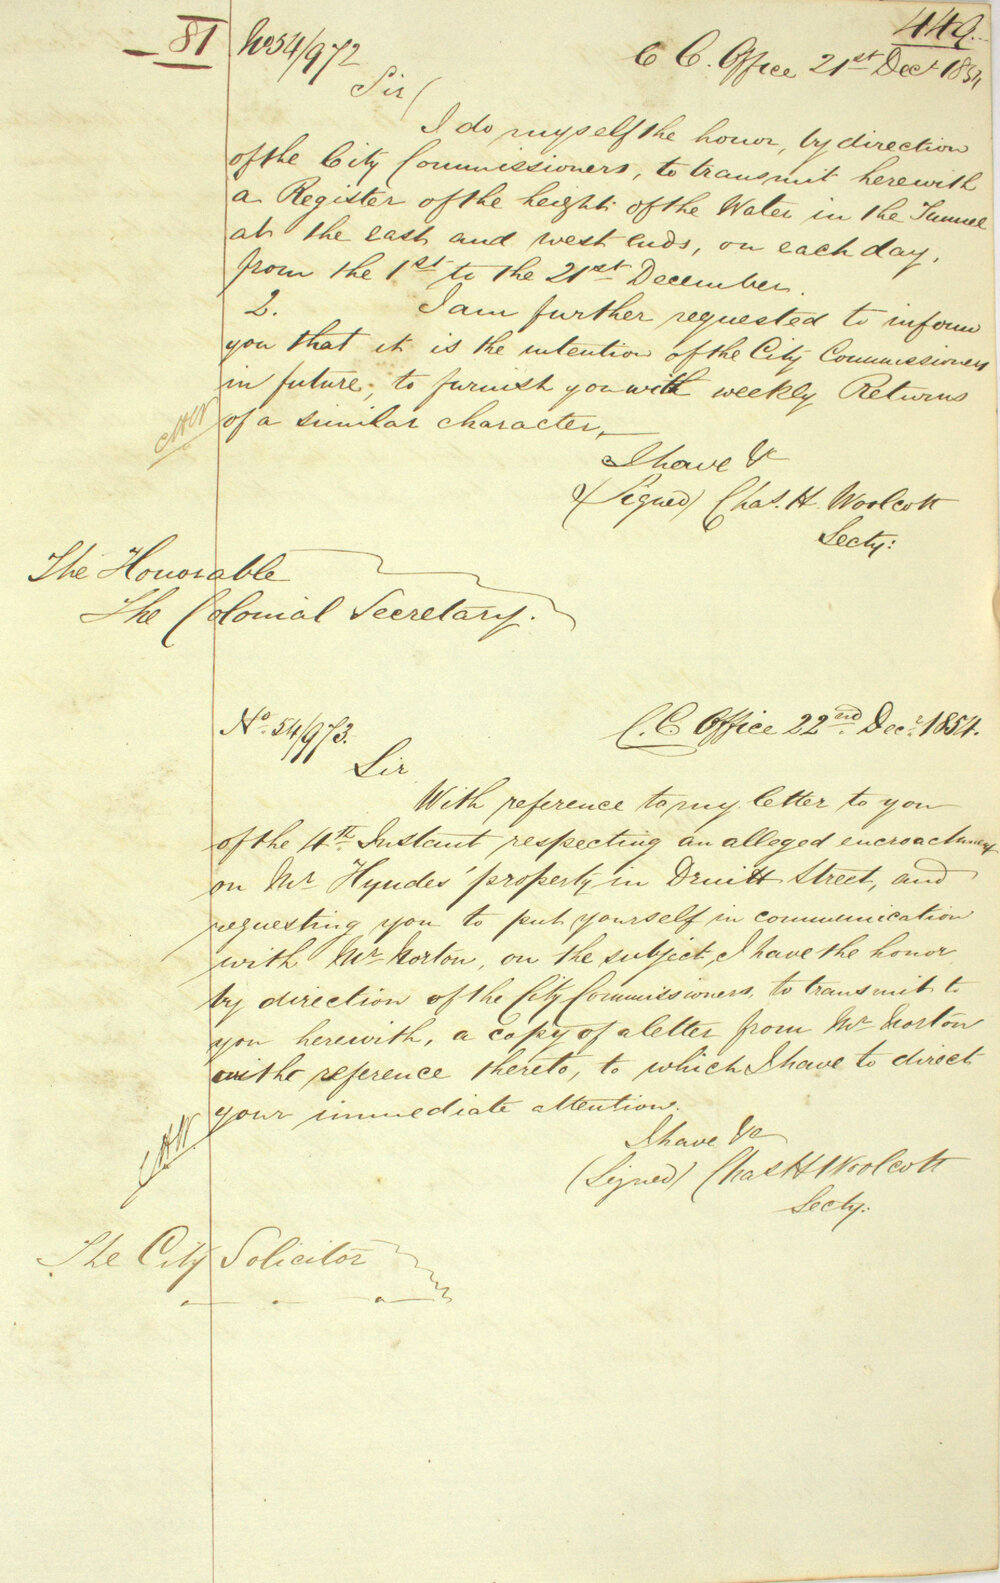 449
81
No 54/972
C C. Office 21st Decr 1854
Sir
I do myself the honor, by direction
of the City Commissioners, to transmit herewith
a Register of the height of the Water in the Tunnel
at the east and west ends, on each day,
from the 1st to the 21st December.
2. I am further requested to inform
you that it is the intention of the City Commissioners
in future, to furnish you with weekly Returns
of a similar character,
CHW
I have &c
(Signed) Chas. H. Woolcott
Secty:
The Honorable
The Colonial Secretary.
No. 54/973.
C. C Office 22nd Decr. 1854.
Sir
With reference to my letter to you
of the 4th Instant respecting an alleged encroachment
on Mr Hyndes' property in Druitt Street, and
requesting you to put yourself in communication
with Mr Norton, on the subject, I have the honor
by direction of the City Commissioners, to transmit to
you herewith, a copy of a letter from Mr Norton
with reference thereto, to which I have to direct
your immediate attention.
CHW
I have &c
(Signed) Chas H Woolcott
Secty:
The City Solicitor